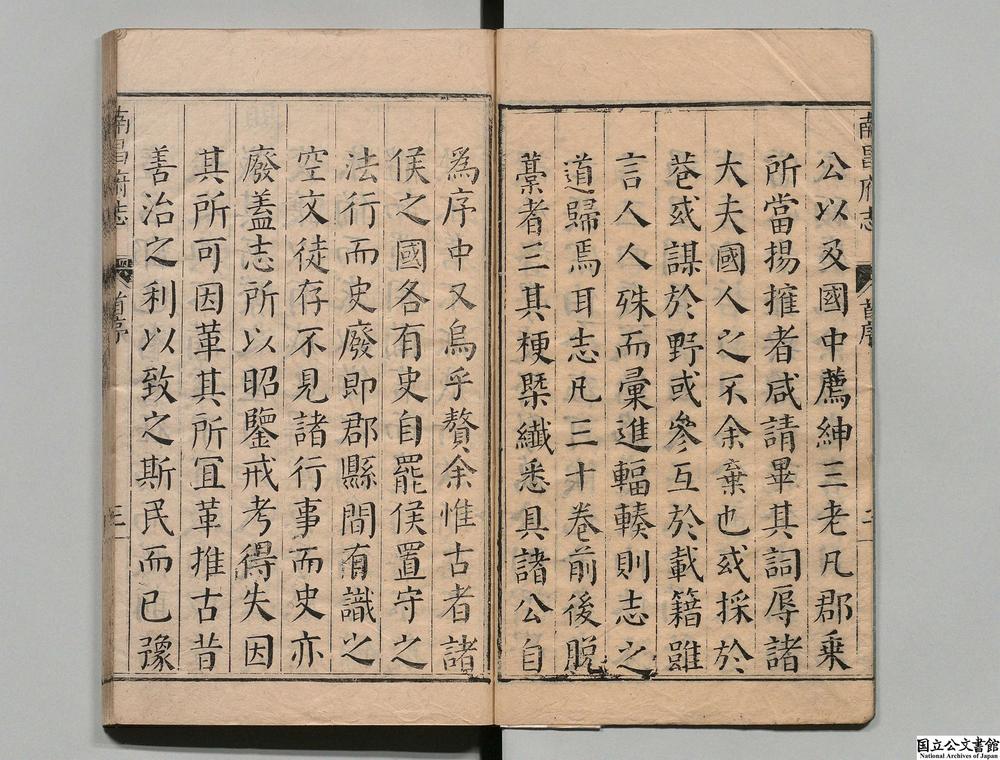 南昌府志
首序
二
公以及國中薦紳三老凡郡乗
所當揚搉者咸請畢其詞辱諸
大夫國人之不余棄也或採於
巷或謀於野或參互於載籍雖
言人人殊而彙進輻輳則志之
道歸焉耳志凡三十卷前後脫
藁者三其梗槩纖悉具諸公自
為序中又烏乎贅余惟古者諸
侯之國各有史自罷侯置守之
法行而史廢即郡縣間有識之
空文徒存不見諸行事而史亦
廢蓋志所以昭鑒戒考得失因
其所可因革其所冝革推古昔
善治之利以致之斯民而已豫
南昌府志
首序
三
国立公文書館
National Archives of Japan